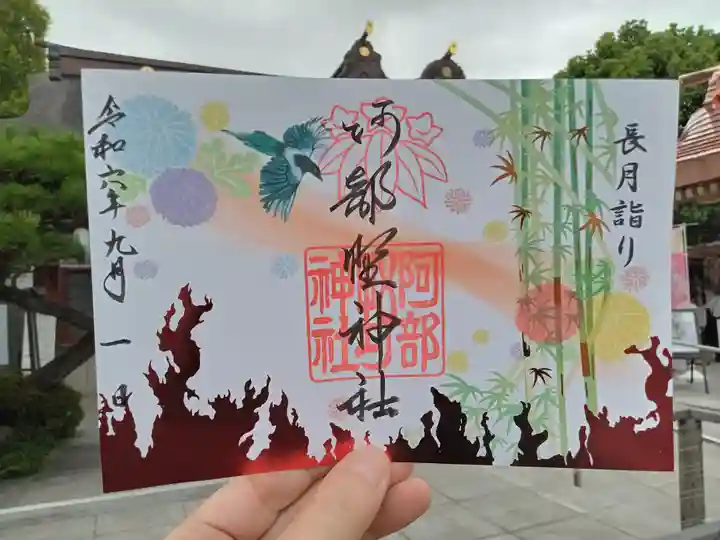 長月詣り
阿部野神社
阿部
野
神社
令和六年九月一日